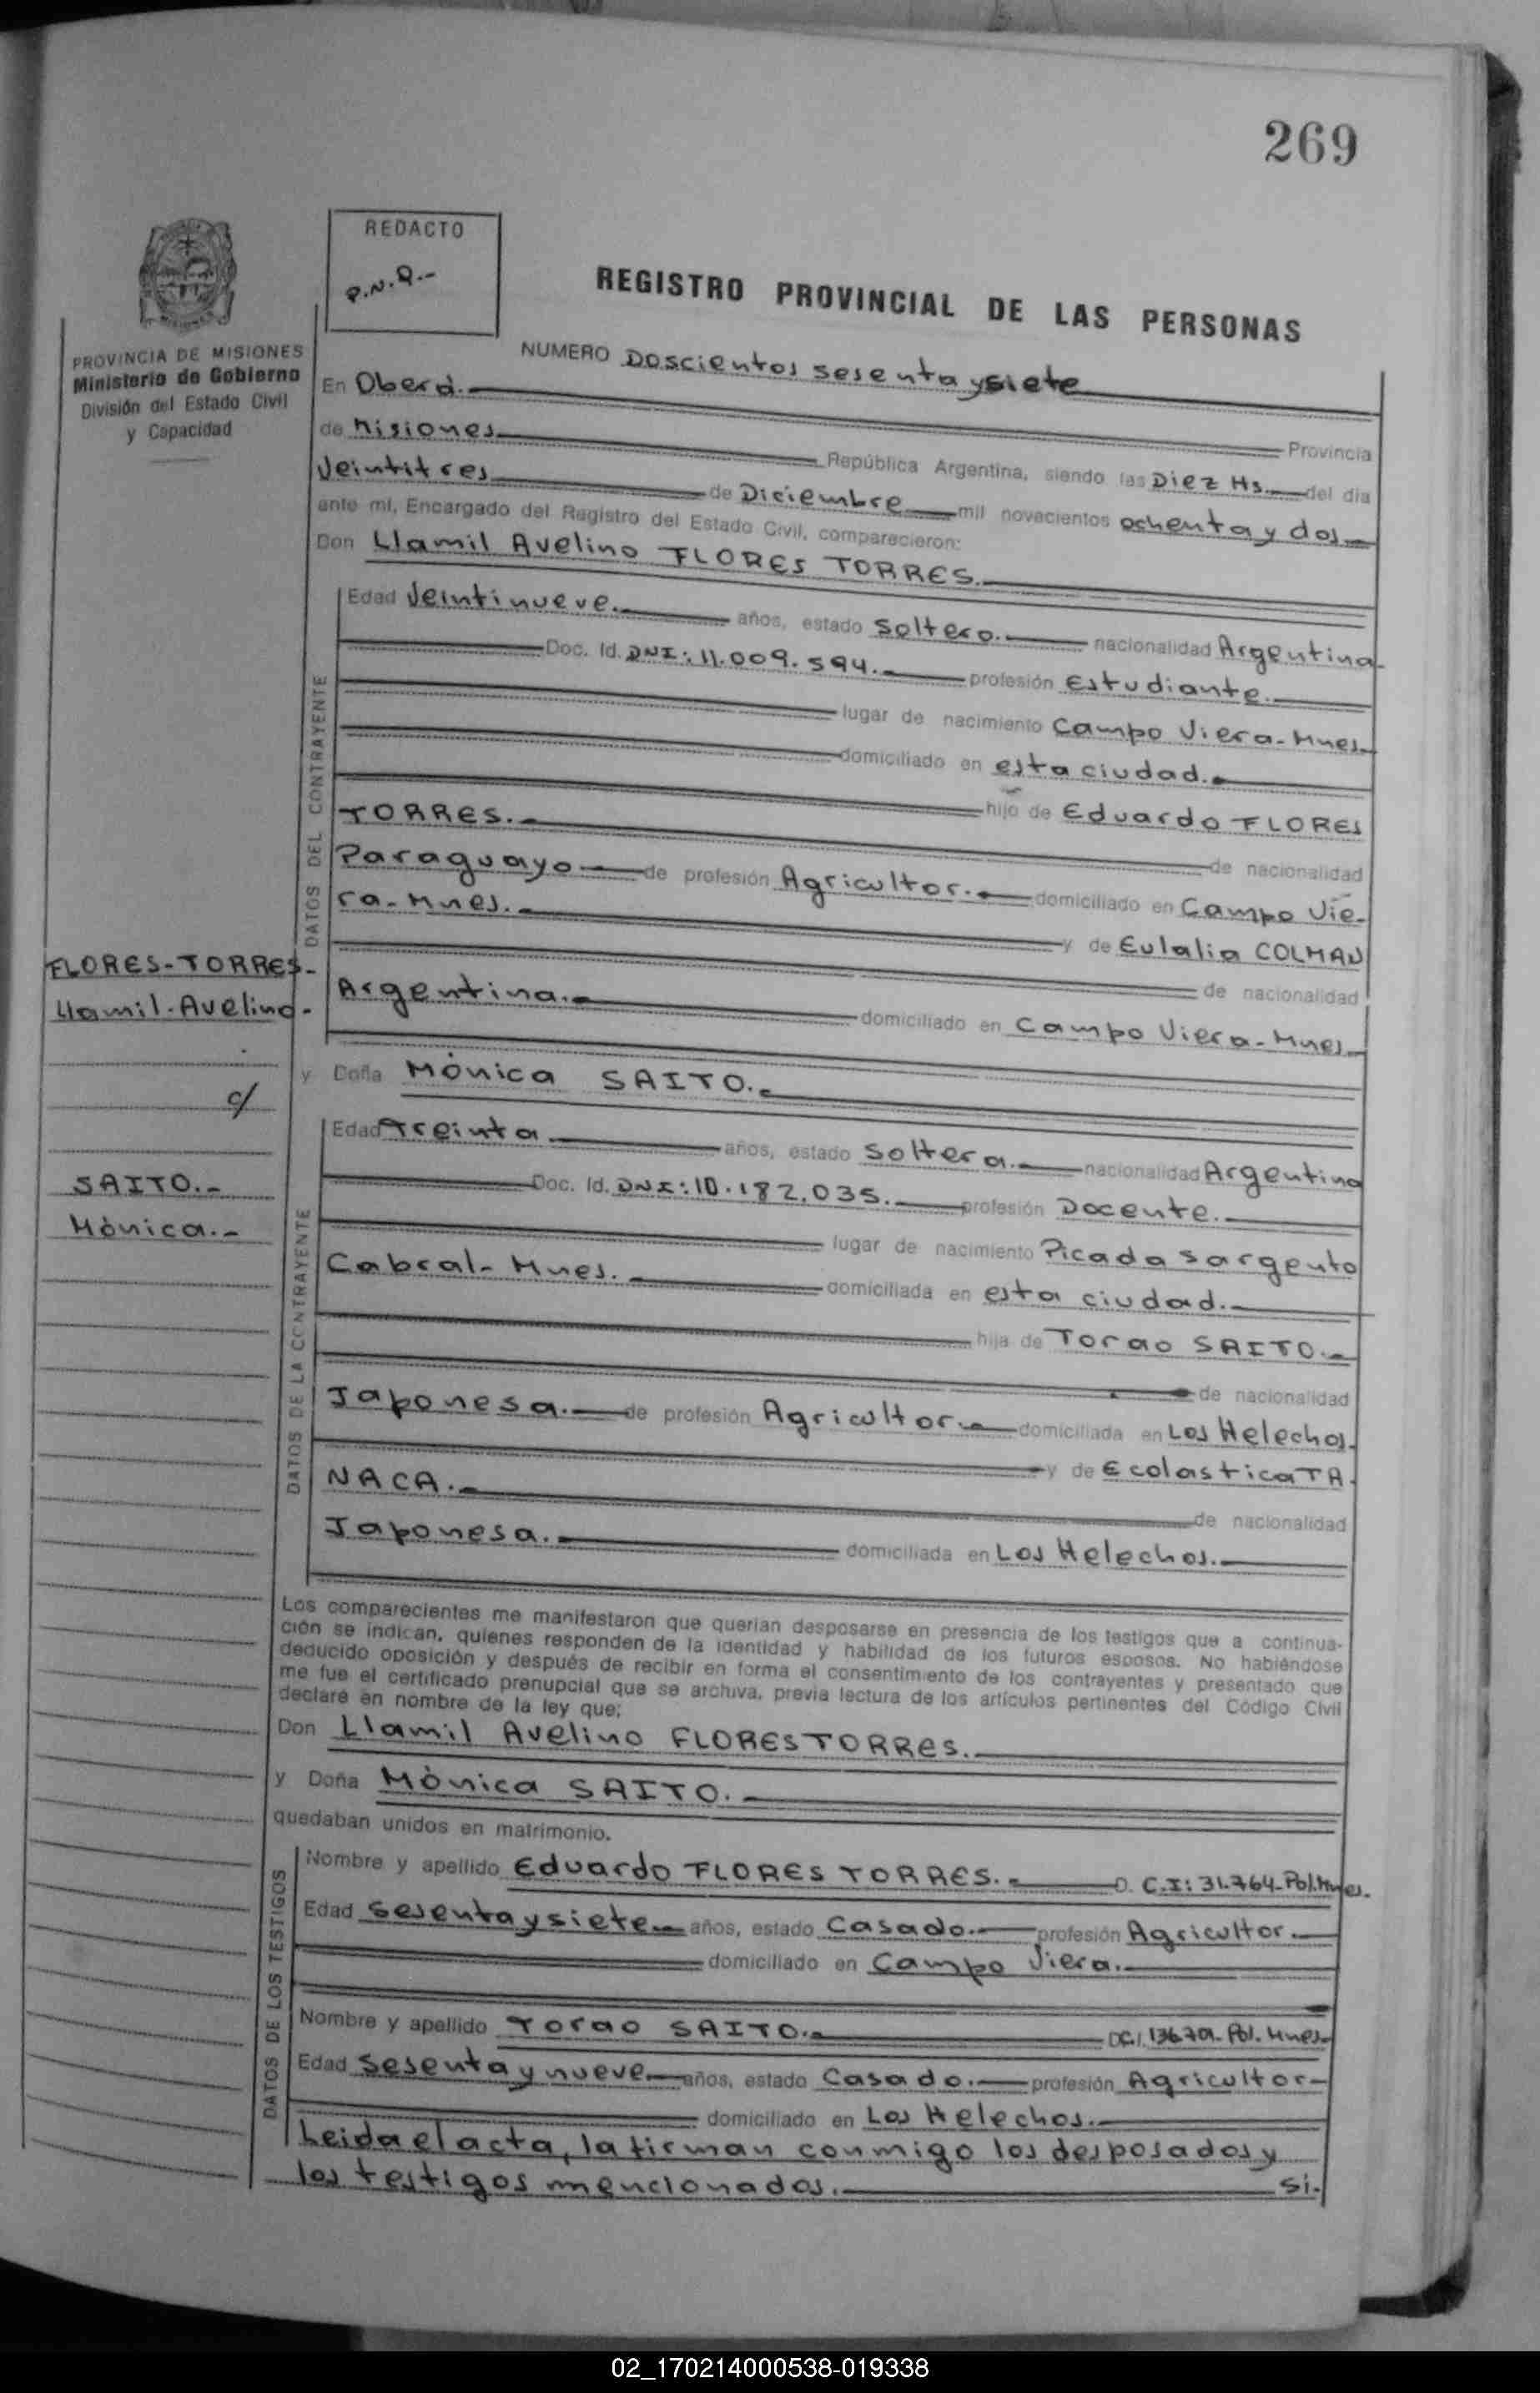 269
REDACTO
P.N.Q.-
REGISTRO PROVINCIAL DE LAS PERSONAS
PROVINCIA DE MISIONES
Ministerio de Gobierno
División del Estado Civil
y Capacidad
NUMERO Doscientos sesenta y siete
En Oberá. Provincia
de Misiones República Argentina, siendo las Diez Hs. del día
Veintitres de Diciembre mil novecientos ochenta y dos
ante mí, Encargado del Registro del Estado Civil, comparecieron:
Don Llamil Avelino FLORES TORRES.
DATOS DEL CONTRAYENTE
Edad Veintinueve. años, estado Soltero. nacionalidad Argentina-
Doc. Id. DNI: 11.009.594. profesión Estudiante.
lugar de nacimiento Campo Viera-Mnes.
domiciliado en esta ciudad.
hijo de Eduardo FLORES
TORRES. de nacionalidad
Paraguayo de profesión Agricultor. domiciliado en Campo Vie-
ra-Mnes. y de Eulalia COLMAN
de nacionalidad
Argentina. domiciliado en Campo Viera-Mnes.
FLORES-TORRES-
Llamil-Avelino-
c/
SAITO.-
Mónica.-
y Doña Mónica SAITO.
DATOS DE LA CONTRAYENTE
Edad Treinta años, estado Soltera. nacionalidad Argentina
Doc. Id. DNI: 10.182.035. profesión Docente.
lugar de nacimiento Picada Sargento
Cabral-Mnes. domiciliada en esta ciudad.
hija de Torao SAITO.
de nacionalidad
Japonesa. de profesión Agricultor domiciliada en Los Helechos.
y de Ecolastica TA-
NACA. de nacionalidad
Japonesa. domiciliada en Los Helechos.
Los comparecientes me manifestaron que querían desposarse en presencia de los testigos que a continua-
ción se indican, quienes responden de la identidad y habilidad de los futuros esposos. No habiéndose
deducido oposición y después de recibir en forma el consentimiento de los contrayentes y presentado que
me fue el certificado prenupcial que se archiva, previa lectura de los artículos pertinentes del Código Civil
declaré en nombre de la ley que:
Don Llamil Avelino FLORES TORRES.
y Doña Mónica SAITO.
quedaban unidos en matrimonio.
DATOS DE LOS TESTIGOS
Nombre y apellido Eduardo FLORES TORRES. D. C.I: 31.764-Pol.Mnes.
Edad Sesenta y siete años, estado Casado. profesión Agricultor.
domiciliado en Campo Viera.
Nombre y apellido Torao SAITO. Pol. Mnes-
Edad Sesenta y nueve años, estado Casado. profesión Agricultor-
domiciliado en Los Helechos.
Leida el acta, la firman conmigo los desposados y
los testigos mencionados. Si.
02_170214000538-019338